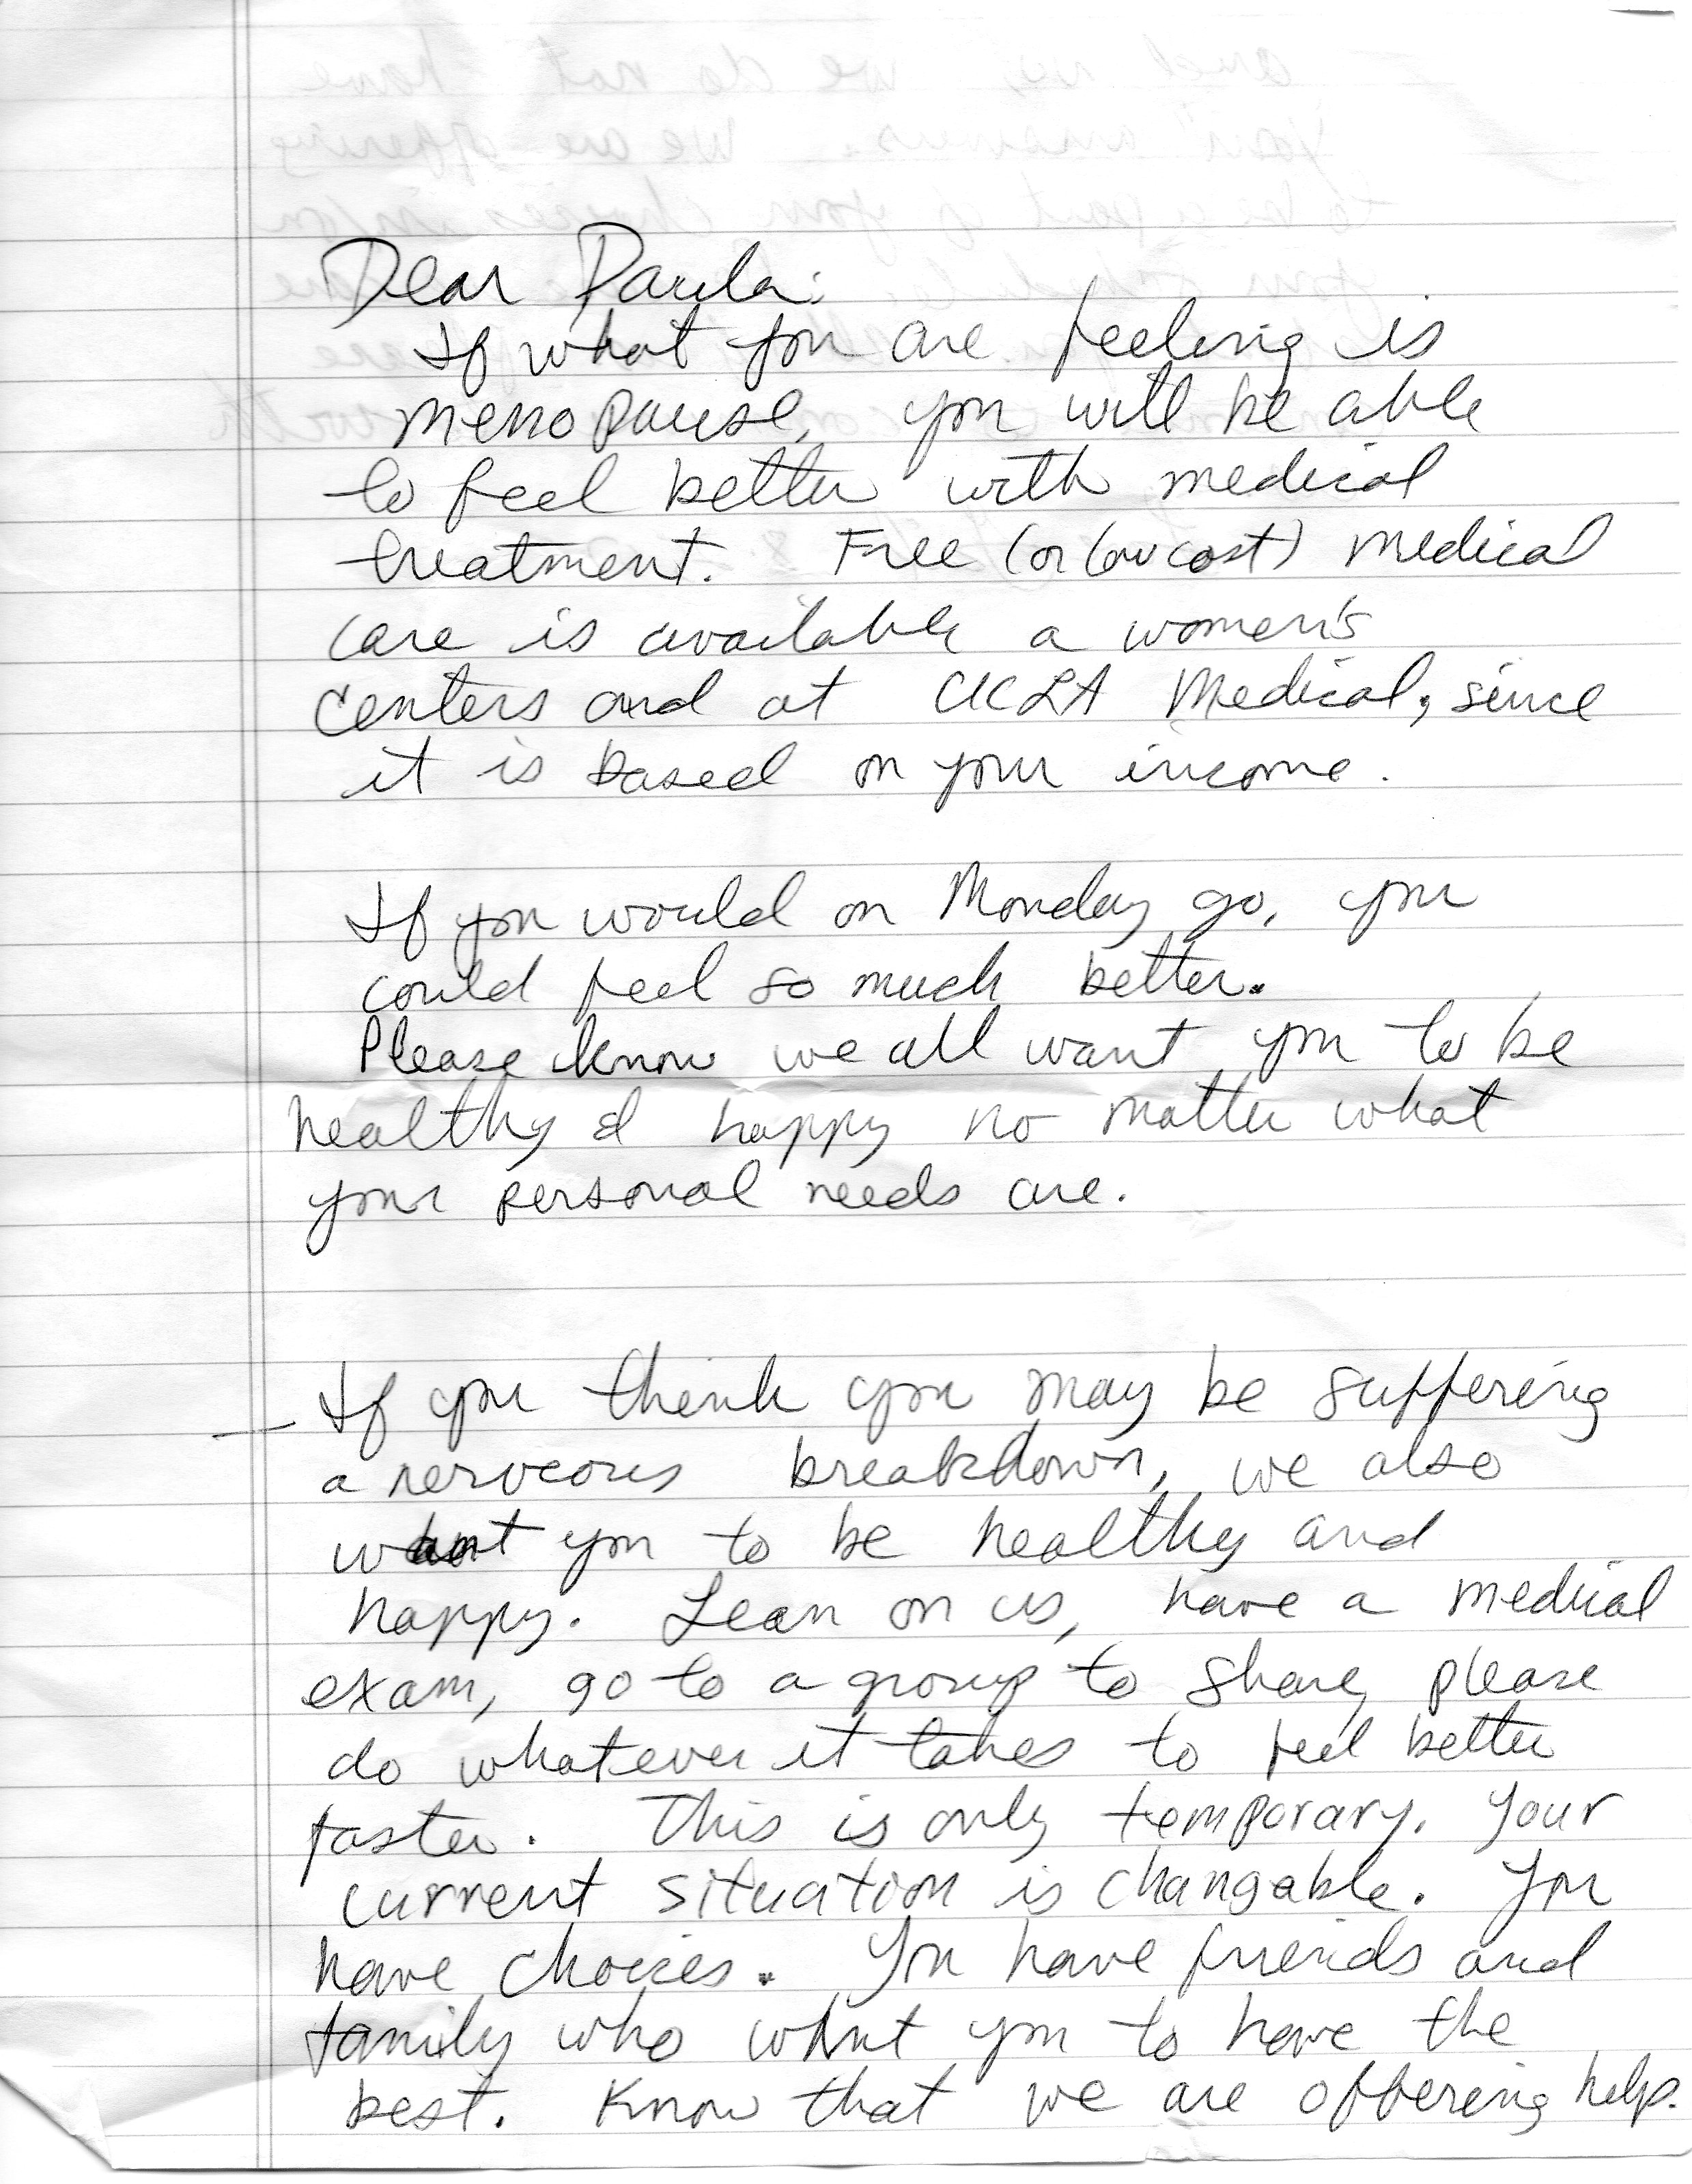 Dear Paula:
If what you are feeling is
menopause, you will be able
to feel better with medical
treatment. Free (or low cost) medical
care is available a women's
centers and at UCLA Medical, since
it is based on your income.
If you would on Monday go, you
could feel so much better.
Please know we all want you to be
healthy & happy no matter what
your personal needs are.
— If you think you may be suffering
a nerveous breakdown, we also
want you to be healthy and
happy. Lean on us, have a medical
exam, go to a group to share, please
do whatever it takes to feel better
faster. This is only temporary. Your
current situation is changable. You
have choices. You have friends and
family who want you to have the
best. Know that we are offering help.